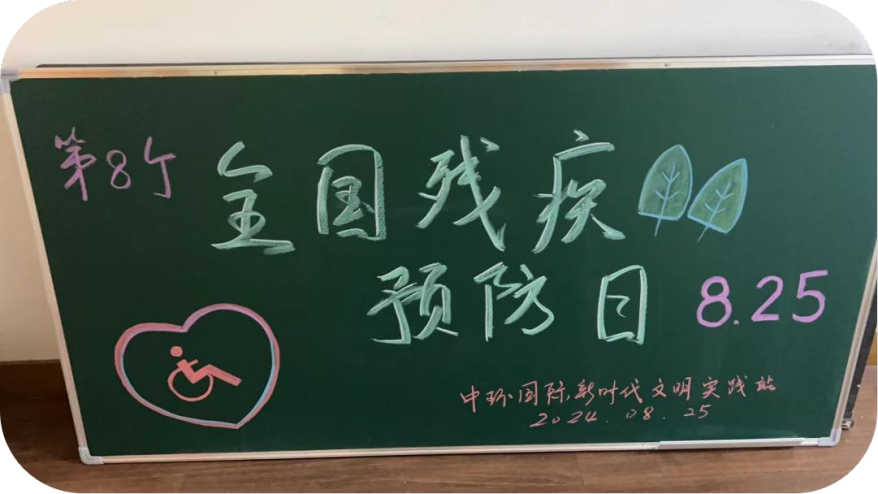 第8个
全国残疾
预防日 8.25
中环国际新时代文明实践站
2024.08.25